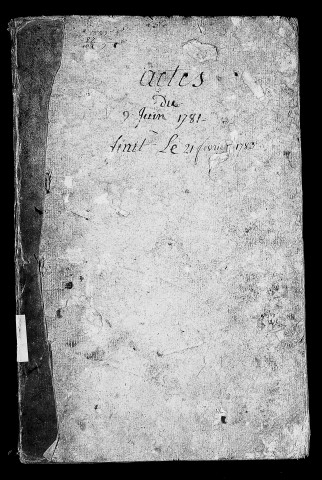 actes
du
9 Juin 1781
finit Le 21 fevrier